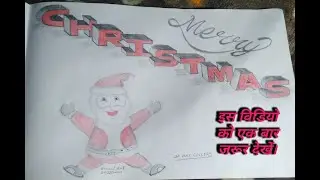 Merry
CHRISTMAS
इस विडियो
को एक बार
जरूर देखें।